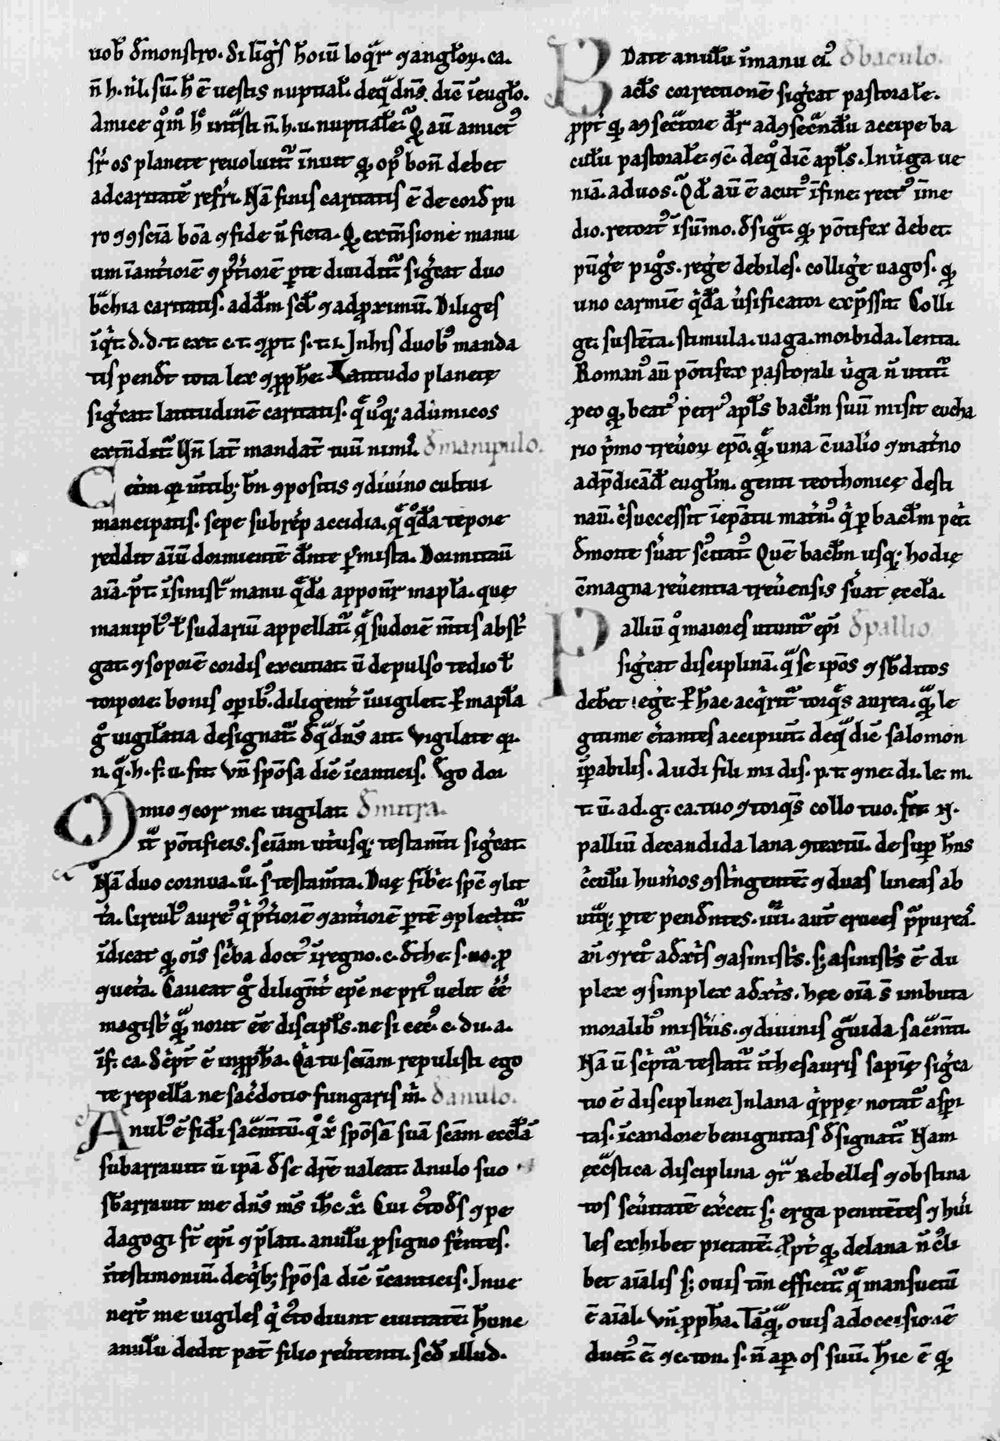 uob̄ dmonstro. Si lig̃s hoiũ loq̃r ⁊ anglor̃. ca.
ñ h. nl̃. sũ. h̃ ẽ uestis nuptial̃. de q̃ dñs. diẽ ĩ euglo.
Amice q̊m̊ h̊ intrasti ñ. h. u. nuptialẽ. Q aũ amict᷒
sr̃ os planete reuoluit᷑ innuit qȝ op᷒ bonũ debet
ad caritatẽ refr̃i. Nã finis caritatis ẽ de cord pu
ro ⁊ ꝯsciã bõa ⁊ fide ñ ficta. Qȝ extẽnsione manu
um ĩ antiorẽ ⁊ pt̃iorẽ pte diuidit᷑ sigcat duo
bchia caritatis. ad dm̃ scl̃ ⁊ ad proximũ. Diliges
iq̃t d. d. t. ext. e. t. ⁊ pt. s. t. i. In his duob᷒ manda
tis pendt̃ tota lex ⁊ pphe. Latitudo planetę
sigcat latitudinẽ caritatis. q̃ usqȝ ad inimicos
extendit᷑ Uñ lat̃ mandat̃ tuũ nimĩ. d̃ manipulo.
Ceũm qȝ mtibȝ bñ ꝯpositis ⁊ diuino cultui
mancipatis. sepe subrep accidia. q̃ q̊da tepore
reddit aĩũ dormientẽ dnte psmista. Dormitauĩ
aĩa. pt. ĩ sinistᵃ manu q̃da apponit᷑ mapla. quę
manipl᷒ ł sudariũ appellat᷑ q̃ sudorẽ mtis abst̃
gat ⁊ soporẽ cordis excutiat ũ depulso tedio ł
torpore bonis opib᷒ diligent̃ inuigilet. P mapla
g̊ uigilãtia designat᷑ d q̃ dñs ait. Vigilate qȝ.
n. q̃. h. f. u. fit Vñ spõsa diẽ ĩ canticis. Ego dor
mio ⁊ cor me. uigilat. d̃ mitra.
Mitᵃ põtificis. sciẽam utiusqȝ testamti sigcat.
Nã duo cornua. ũ. s̃ testamta. Duę fibię. spc̃ ⁊ litt
ta. Circul᷒ aure᷒ q̃ pt̃iorẽ ⁊ antiorẽ ptẽ ꝯplectit᷑
ĩdicat qȝ ois̃ scba doct᷒ ĩ regno. c. d thẽ. s. no. p
⁊ uet̃a. Caueat g̊ diligent̃ epẽ ne pri᷒ uelit ẽẽ
magist̃ q̃ȝ norit ẽẽ discipl̃s. ne si cec᷒ c. du. a.
ĩ f. ca. Script̃ ẽ ĩ ppha. Qa tu sciam repulisti ego
te repella. ne sacdotio fungaris m̃. d̃ anulo.
Anul᷒ ẽ fidei sacmtũ. q̊ xp̃ spõsã suã scam eccłã
subarrauit ũ ipã d se dre ualeat Anulo suo
sbarrauit me dñs ms̃ ihc̃ x᷒. Cui c᷒todes ⁊ pe
dagogi st̃ epi ⁊ plati. anulũ p signo fẽntes.
ĩ testimoniũ. de qbȝ sponsa diẽ ĩ canticis. Inue
nert̃ me uigiles q̃ c᷒todiunt ciuitatẽ. hunc
anulũ dedit pat̃ filio reũtenti. scd̃ illud.
Date anulũ ĩ manu ei᷒. d̃ baculo.
Bacl̃s correctionẽ sigcat pastoralẽ.
ppt̃ qȝ a ꝯsectore dr̃ ad ꝯsecndũ accipe ba
culũ pastoralẽ. ⁊c̃. de q̊ diẽ apl̃s. In uga ue
niã ad uos. Qd̃ aũ ẽ acut᷒ ĩ fine. rect᷒ ĩ me
dio. retort᷒ ĩ sũmo. dsigt̃ qȝ põtifex debet
pũge pig̃os. rege debiles. collige uagos. qȝ
uno carmie q̃da ũsificator exp̃ssit. Colli
ge. sustẽta. stimula. uaga. morbida. lenta.
Roman᷒ aũ põtifex pastorali uga ñ utit᷑
p eo qȝ beat᷒ petr᷒ apl̃s baclm̃ suũ misit eucha
rio pmo treuor̃ epo. q̃ȝ una c̃ ualio ⁊ matno
ad p̃dicãd euglm̃. genti teothonicę desti
nauĩ. c̃ successit ĩ epatu matn᷒ q̃ p baclm̃ pet̃
d morte suat̃ scitat᷒ Quẽ baclm̃ usqȝ hodię
c̃ magna reũentia treũensis suat̃ ęccła.
Palliũ q̊ maiores utunt᷑ epi d̃ pallio.
sigcat disciplinã. q̃ se ipos ⁊ sbditos
debet rege. P hãc acqrit᷑ torq̃s aurea. q̃ȝ le
gitime ctantes accipiunt. de q̃ diẽ salomon
ĩ pabilis. Audi fili mi dis. p. t. ⁊ ne di. le. m.
t. ũ. ad. g. ca. tuo ⁊ torq̃s collo tuo. fit. N.
palliũ de candida lana ꝯtextũ. desup hñs
cculũ humos ꝯstringentẽ. ⁊ duas lineas ab
utqȝ pte pendntes. iiii. aut cruces p̃pureas.
aĩ ⁊ ret᷒ a dxtis ⁊ a sinistis. sȝ a sinistis ẽ du
plex ⁊ simplex a dxtis. hec oĩa s̃ imbuta
moralib᷒ misteriis. ⁊ diuinis gᵃuida sacmtis.
Nã ũ scpta testat᷑ ĩ thesauris sapię sigca
tio ẽ discipline. In lana q̃ppę notat᷑ aspi
tas. ĩ candore benignitas dsignat᷑ Nam
ęccstica disciplina ꝯt̃ Rebelles ⁊ obstina
tos seũitatẽ excet sȝ erga penitẽtes ⁊ hui
les exhibet pietatẽ. Ppt̃ qȝ de lana ñ cli
bet aialis sȝ ouis tm̃ efficit᷑ q̃ mansuetũ
ẽ aial̃. Vñ ppha. Taqȝ ouis ad occisionẽ
duct᷒ ẽ. ⁊c. ton. s. ñ ap. os suũ. hĩc ẽ qȝ